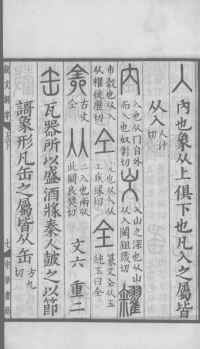 入內也象从上俱下也凡入之屬皆
从入人汁切
內入也从冂自外而入也奴對切㞥入山之深也从山从入闕鉏箴切糴
市穀也从入从𥹋徒歷切仝完也从入从工疾緣切全篆文仝从玉純玉曰全
古文仝从二入也兩从此闕良獎切文六 重二
缶瓦器所以盛酒漿秦人鼓之以節
謌象形凡缶之屬皆从缶方九切